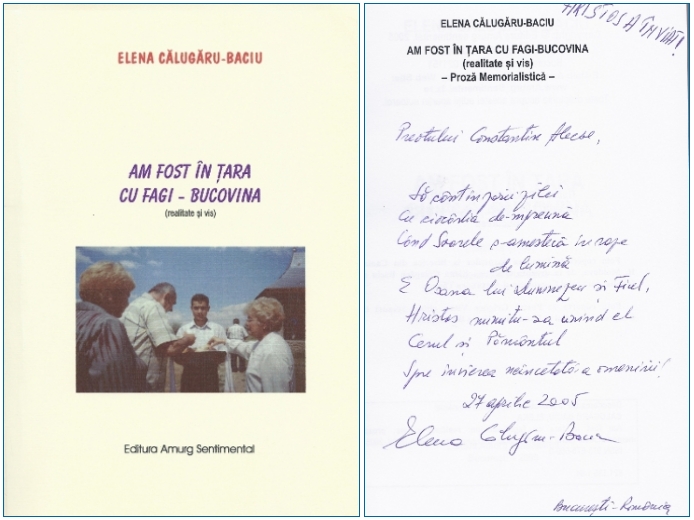 ELENA CĂLUGĂRU-BACIU
AM FOST ÎN ȚARA
CU FAGI – BUCOVINA
(realitate și vis)
Editura Amurg Sentimental
HRISTOS A ÎNVIAT!
ELENA CĂLUGĂRU-BACIU
AM FOST ÎN ȚARA CU FAGI-BUCOVINA
(realitate și vis)
– Proză Memorialistică –
Preotului Constantin Alecse,
Să cânt în zorii zilei
Cu ciocârlia de-mpreună
Când Soarele s-amestecă în
de lumină
E Osana lui Dumnezeu și Fiul,
Hristos numitu-s-a unind el
Cerul și Pământul
Spre învierea neîncetată a omenirii!
27 aprilie 2005
Elena Călugăru-Baciu
București-România